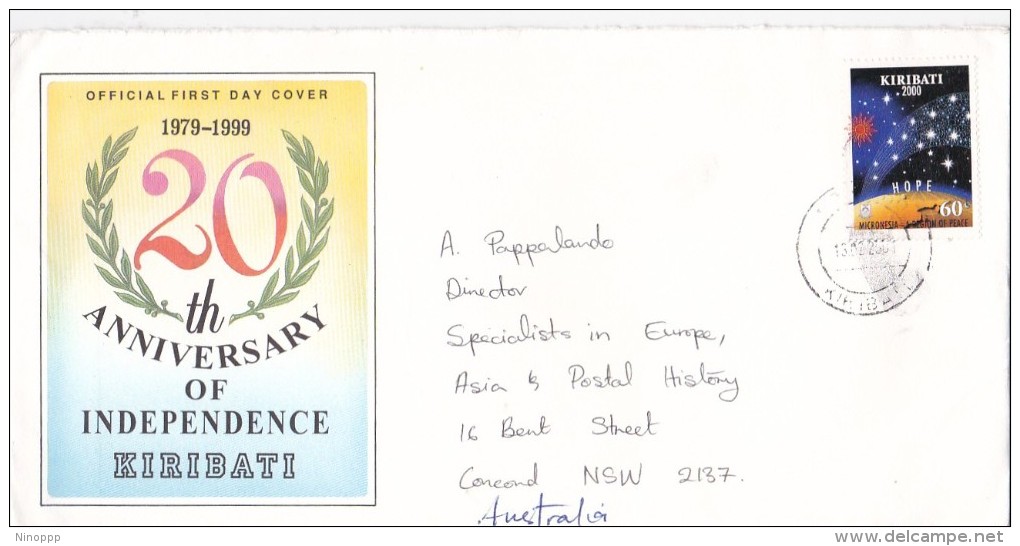 OFFICIAL FIRST DAY COVER
1979-1999
20
th
ANNIVERSARY
OF
INDEPENDENCE
KIRIBATI
KIRIBATI
2000
HOPE
60c
MICRONESIA - REGION OF PEACE
KIRIBATI
A. Pappalardo
Director
Specialists in Europe,
Asia & Postal History
16 Bent Street
Concord NSW 2137.
Australia
Ninoppp
delcampe.net